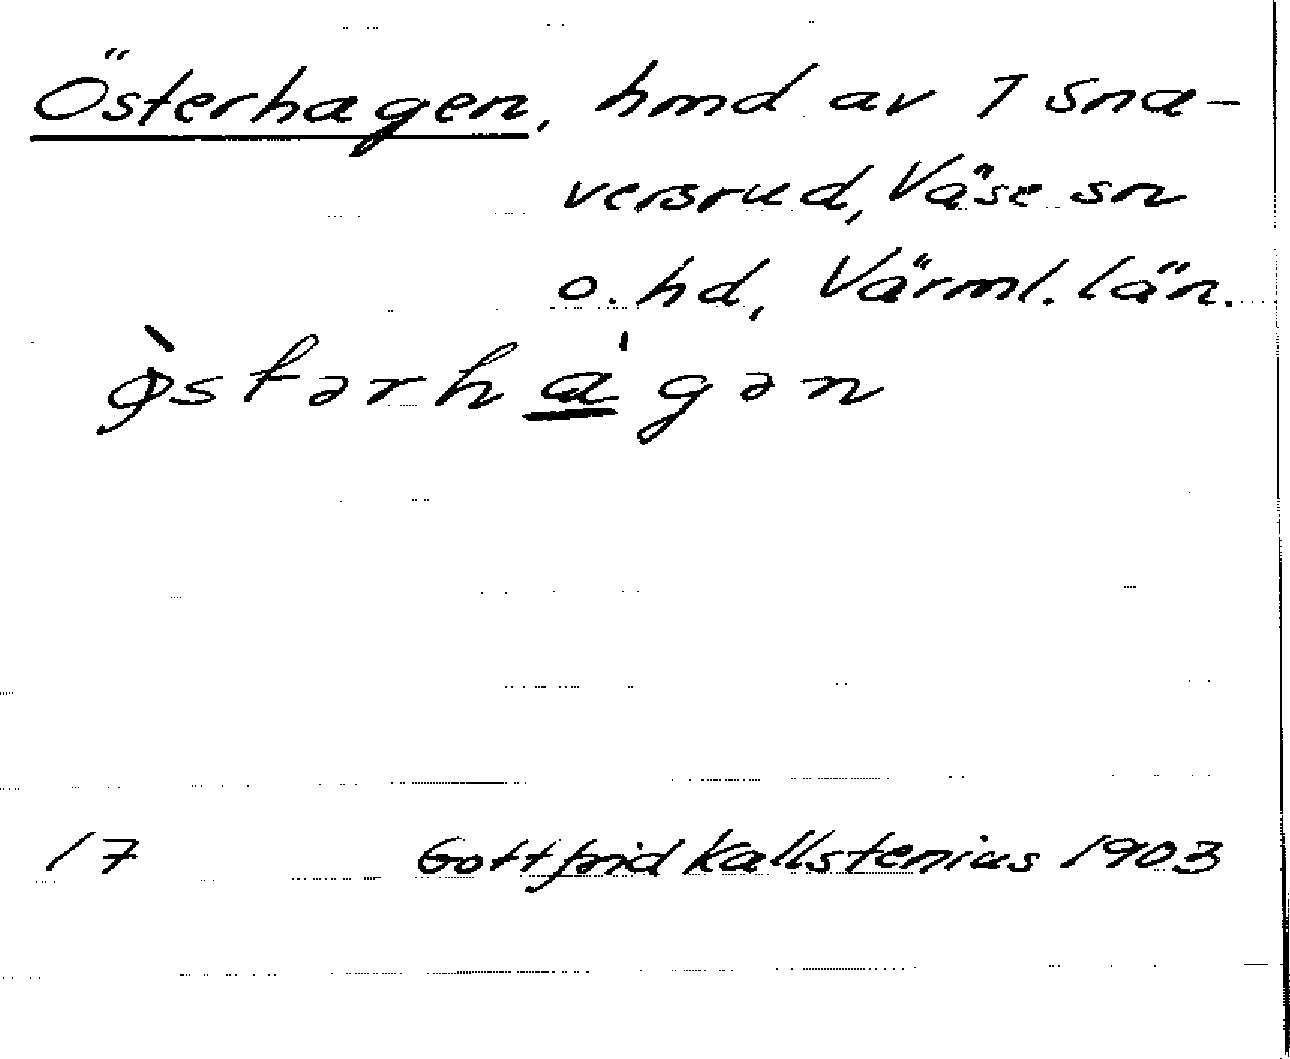 Österhagen, hmd av 1 Sna-
versrud, Väse sn
o. hd, Värml. län.
ø̀stərha̲'gən
17 Gottfrid Kallstenius 1903